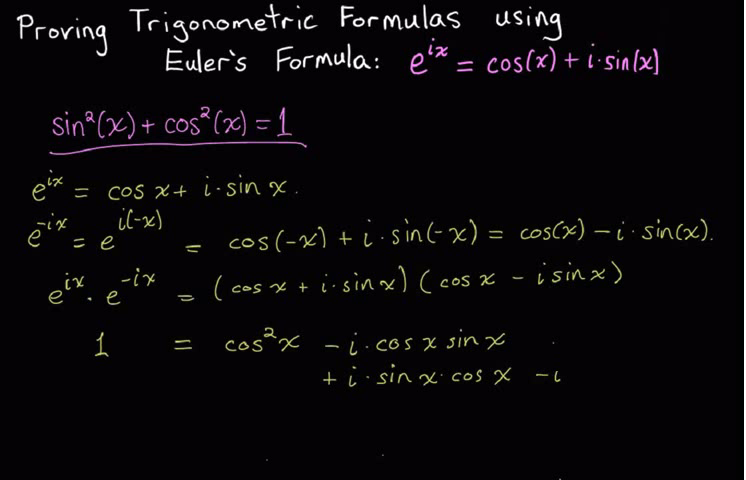 Proving Trigonometric Formulas using
Euler's Formula: e^{ix} = cos(x) + i·sin(x)
sin²(x) + cos²(x) = 1
e^{ix} = cos x + i·sin x.
e^{-ix} = e^{i(-x)} = cos(-x) + i·sin(-x) = cos(x) - i·sin(x).
e^{ix} · e^{-ix} = (cos x + i·sin x)(cos x - i sin x)
1 = cos²x - i·cos x sin x
+ i·sin x·cos x - i